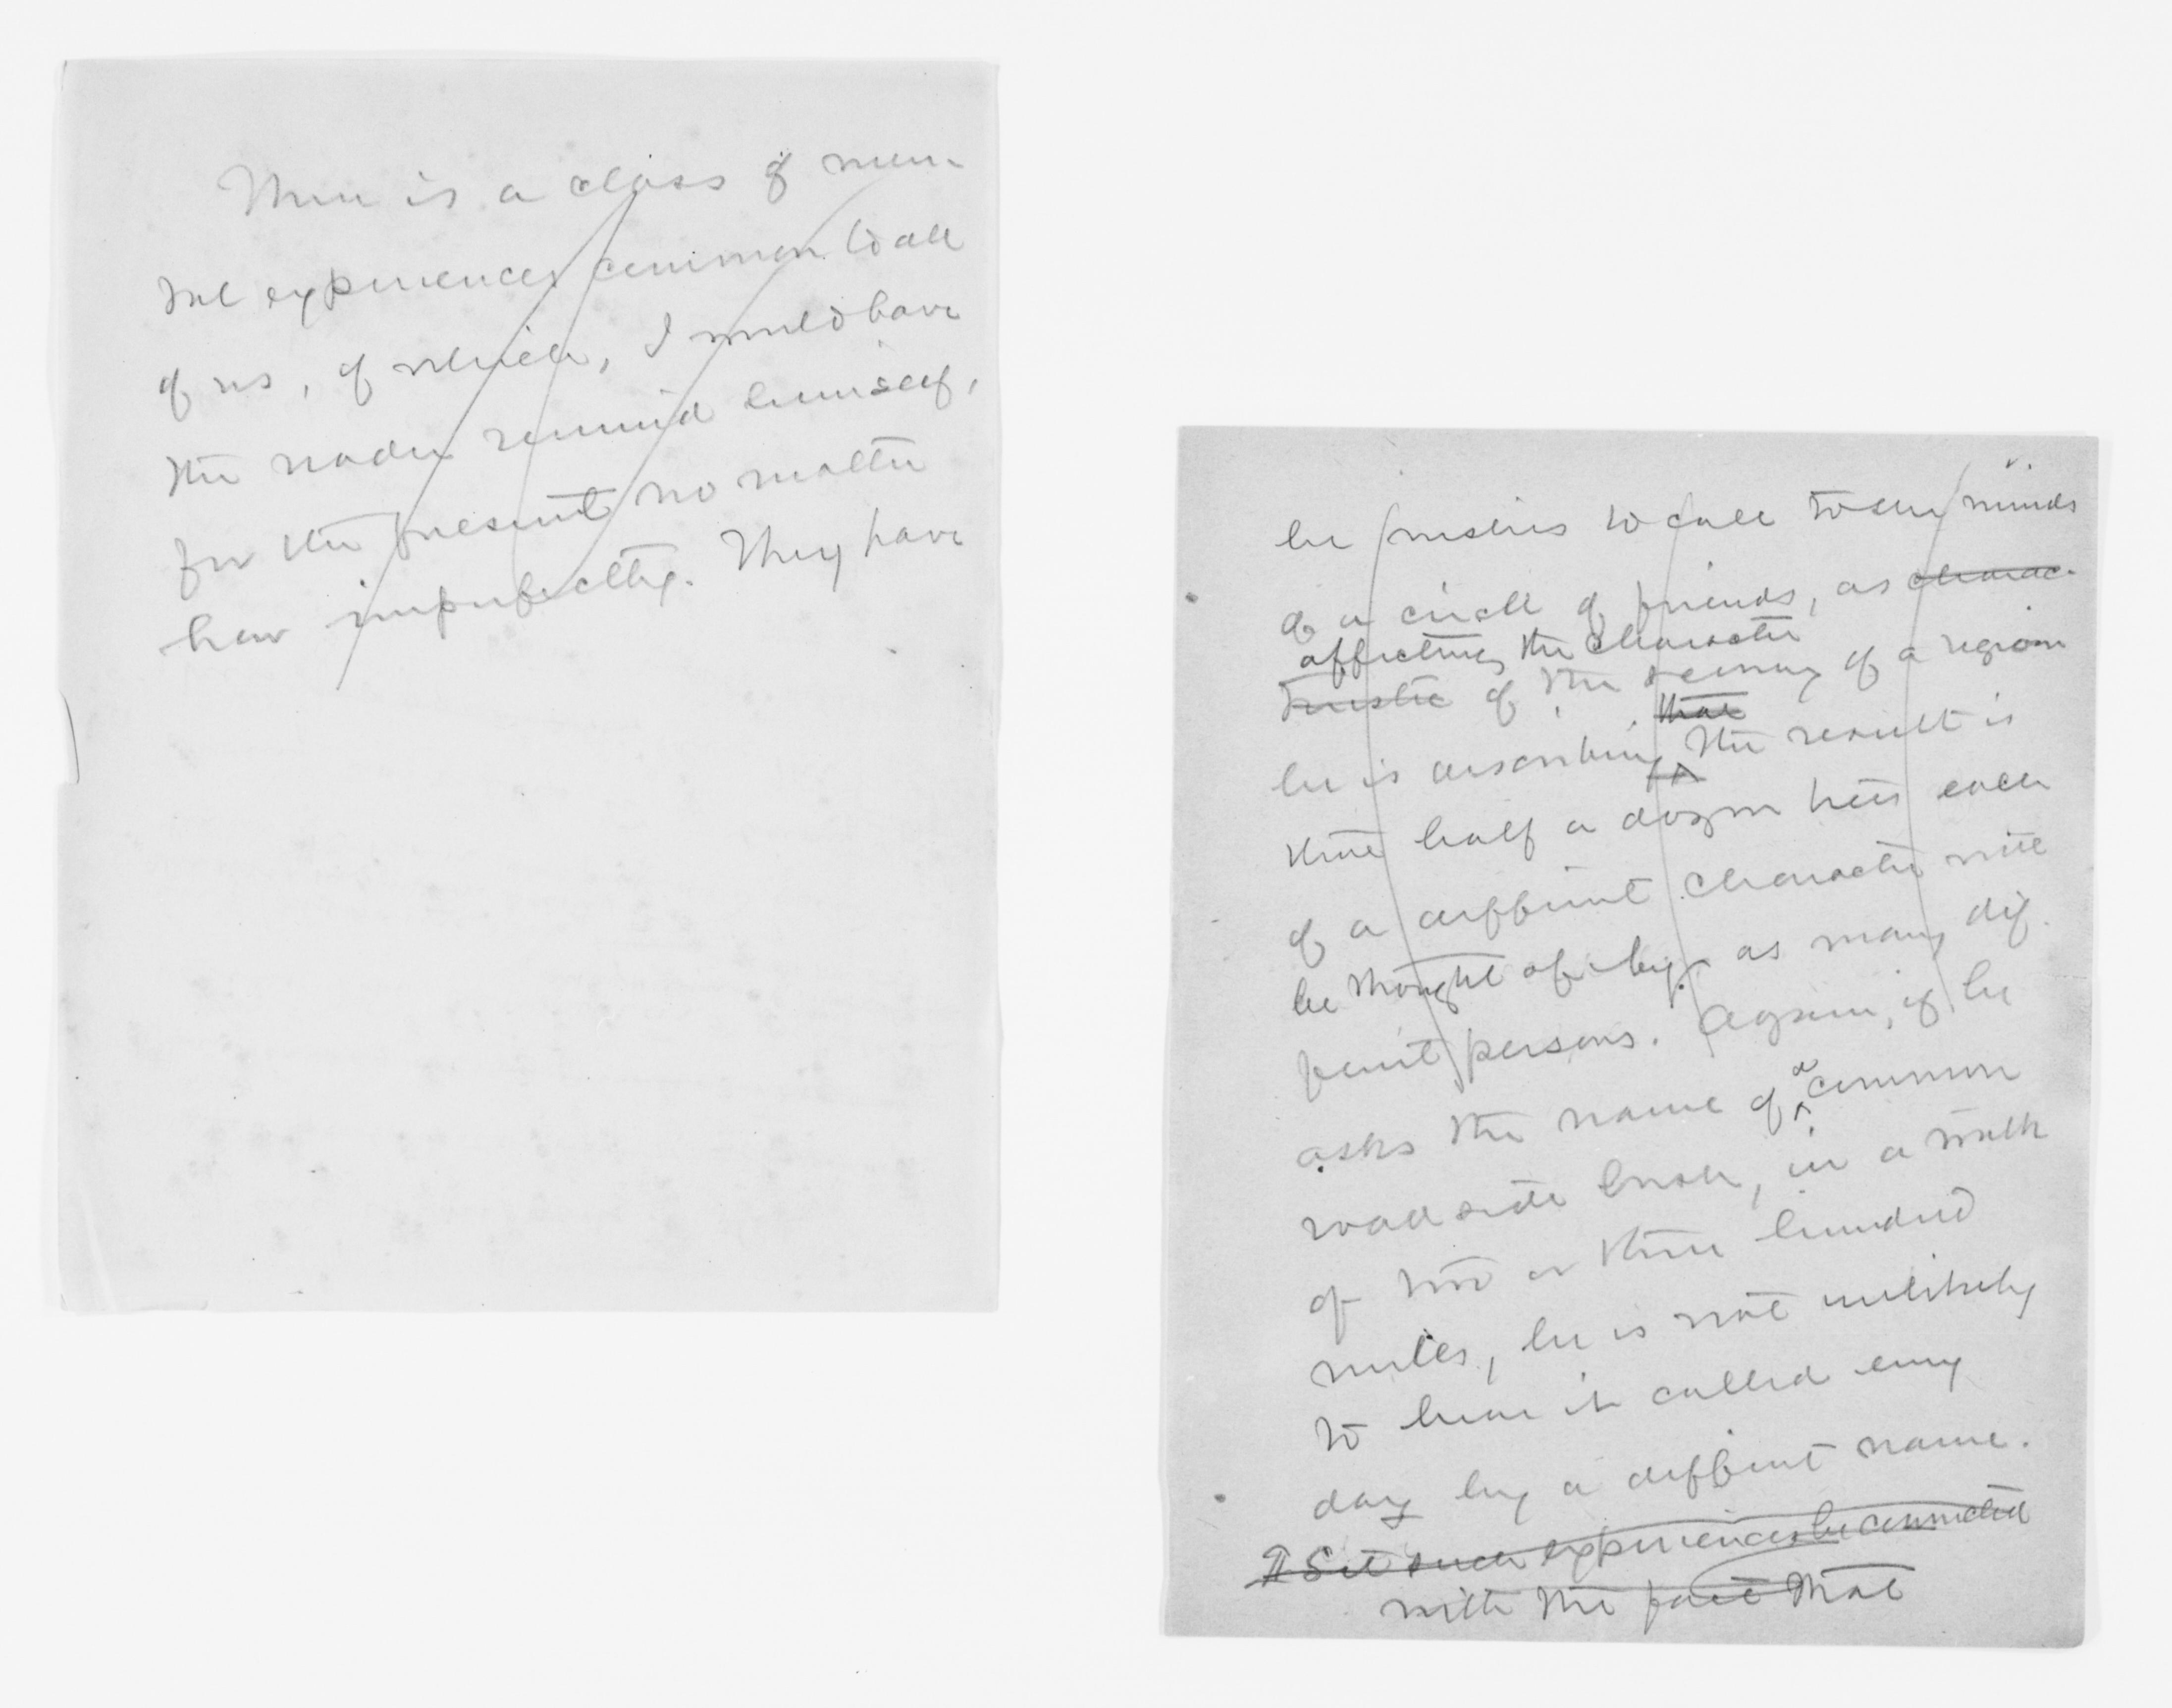 There is a class of men
tal experiences common to all
of us, of which, I would have
the reader remind himself,
for the present no matter
how imperfectly. They have
he wishes to call to the minds
of a circle of friends, as charac-
affecting the character
teristic of the scenery of a region
that
he is describing, the result is
that half a dozen trees each
of a different character will
be thought of by as many dif-
ferent persons. Again, if he
a
asks the name of common
road side bush, in a walk
of two or three hundred
miles, he is not unlikely
to hear it called every
day by a different name.
¶ Set such experiences be connected
with the fact that